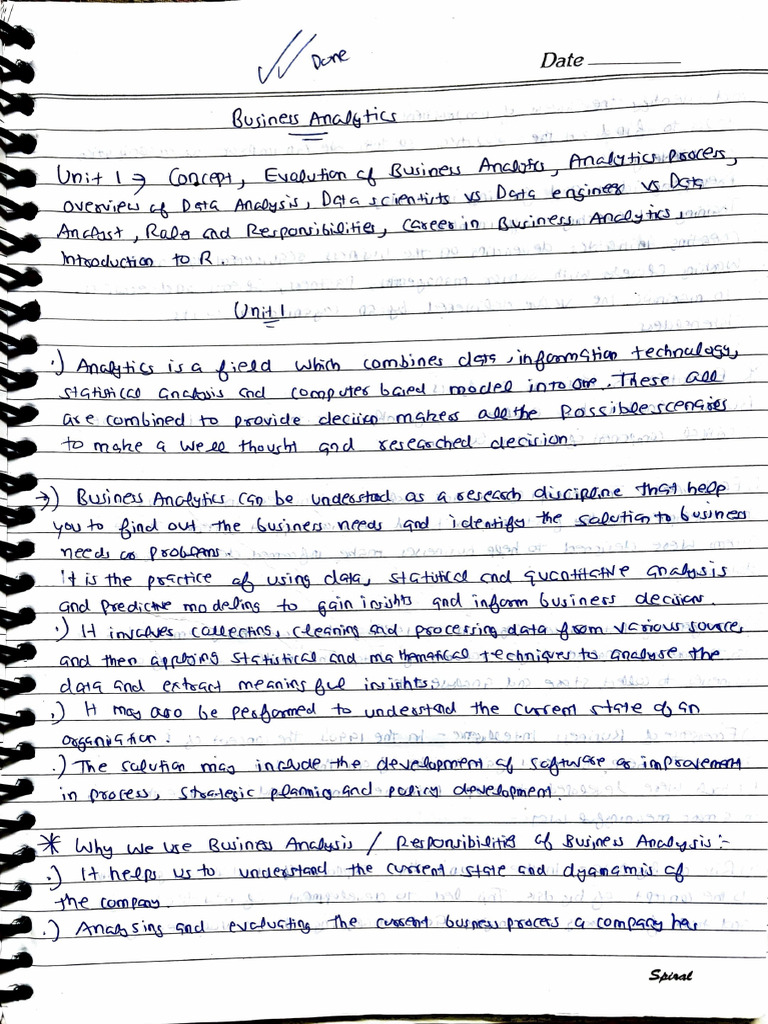 Done
Date
Business Analytics
Unit 1 → Concept, Evaluation of Business Analytics, Analytics process,
overview of Data Analysis, Data scientists vs Data engineer vs Data
Analyst, Roles and Responsibilities, Career in Business Analytics,
Introduction to R.
Unit 1
.) Analytics is a field which combines data, information technology,
statistical analysis and computer based model into one. These all
are combined to provide decision makers all the possible scenarios
to make a well thought and researched decision.
→) Business Analytics can be understood as a research discipline that help
you to find out the business needs and identify the solution to business
needs or problems.
It is the practice of using data, statistical and quantitative analysis
and predictive modeling to gain insights and inform business decision.
.) It involves collecting, cleaning and processing data from various sources,
and then applying statistical and mathematical techniques to analyse the
data and extract meaningful insights.
.) It may also be performed to understand the current state of an
organisation.
.) The solution may include the development of software or improvement
in process, strategic planning and policy development.
* Why we use Business Analysis / Responsibilities of Business Analysis :-
.) It helps us to understand the current state and dyanamis of
the company.
.) Analysing and evaluating the current business process a company has,
Spiral